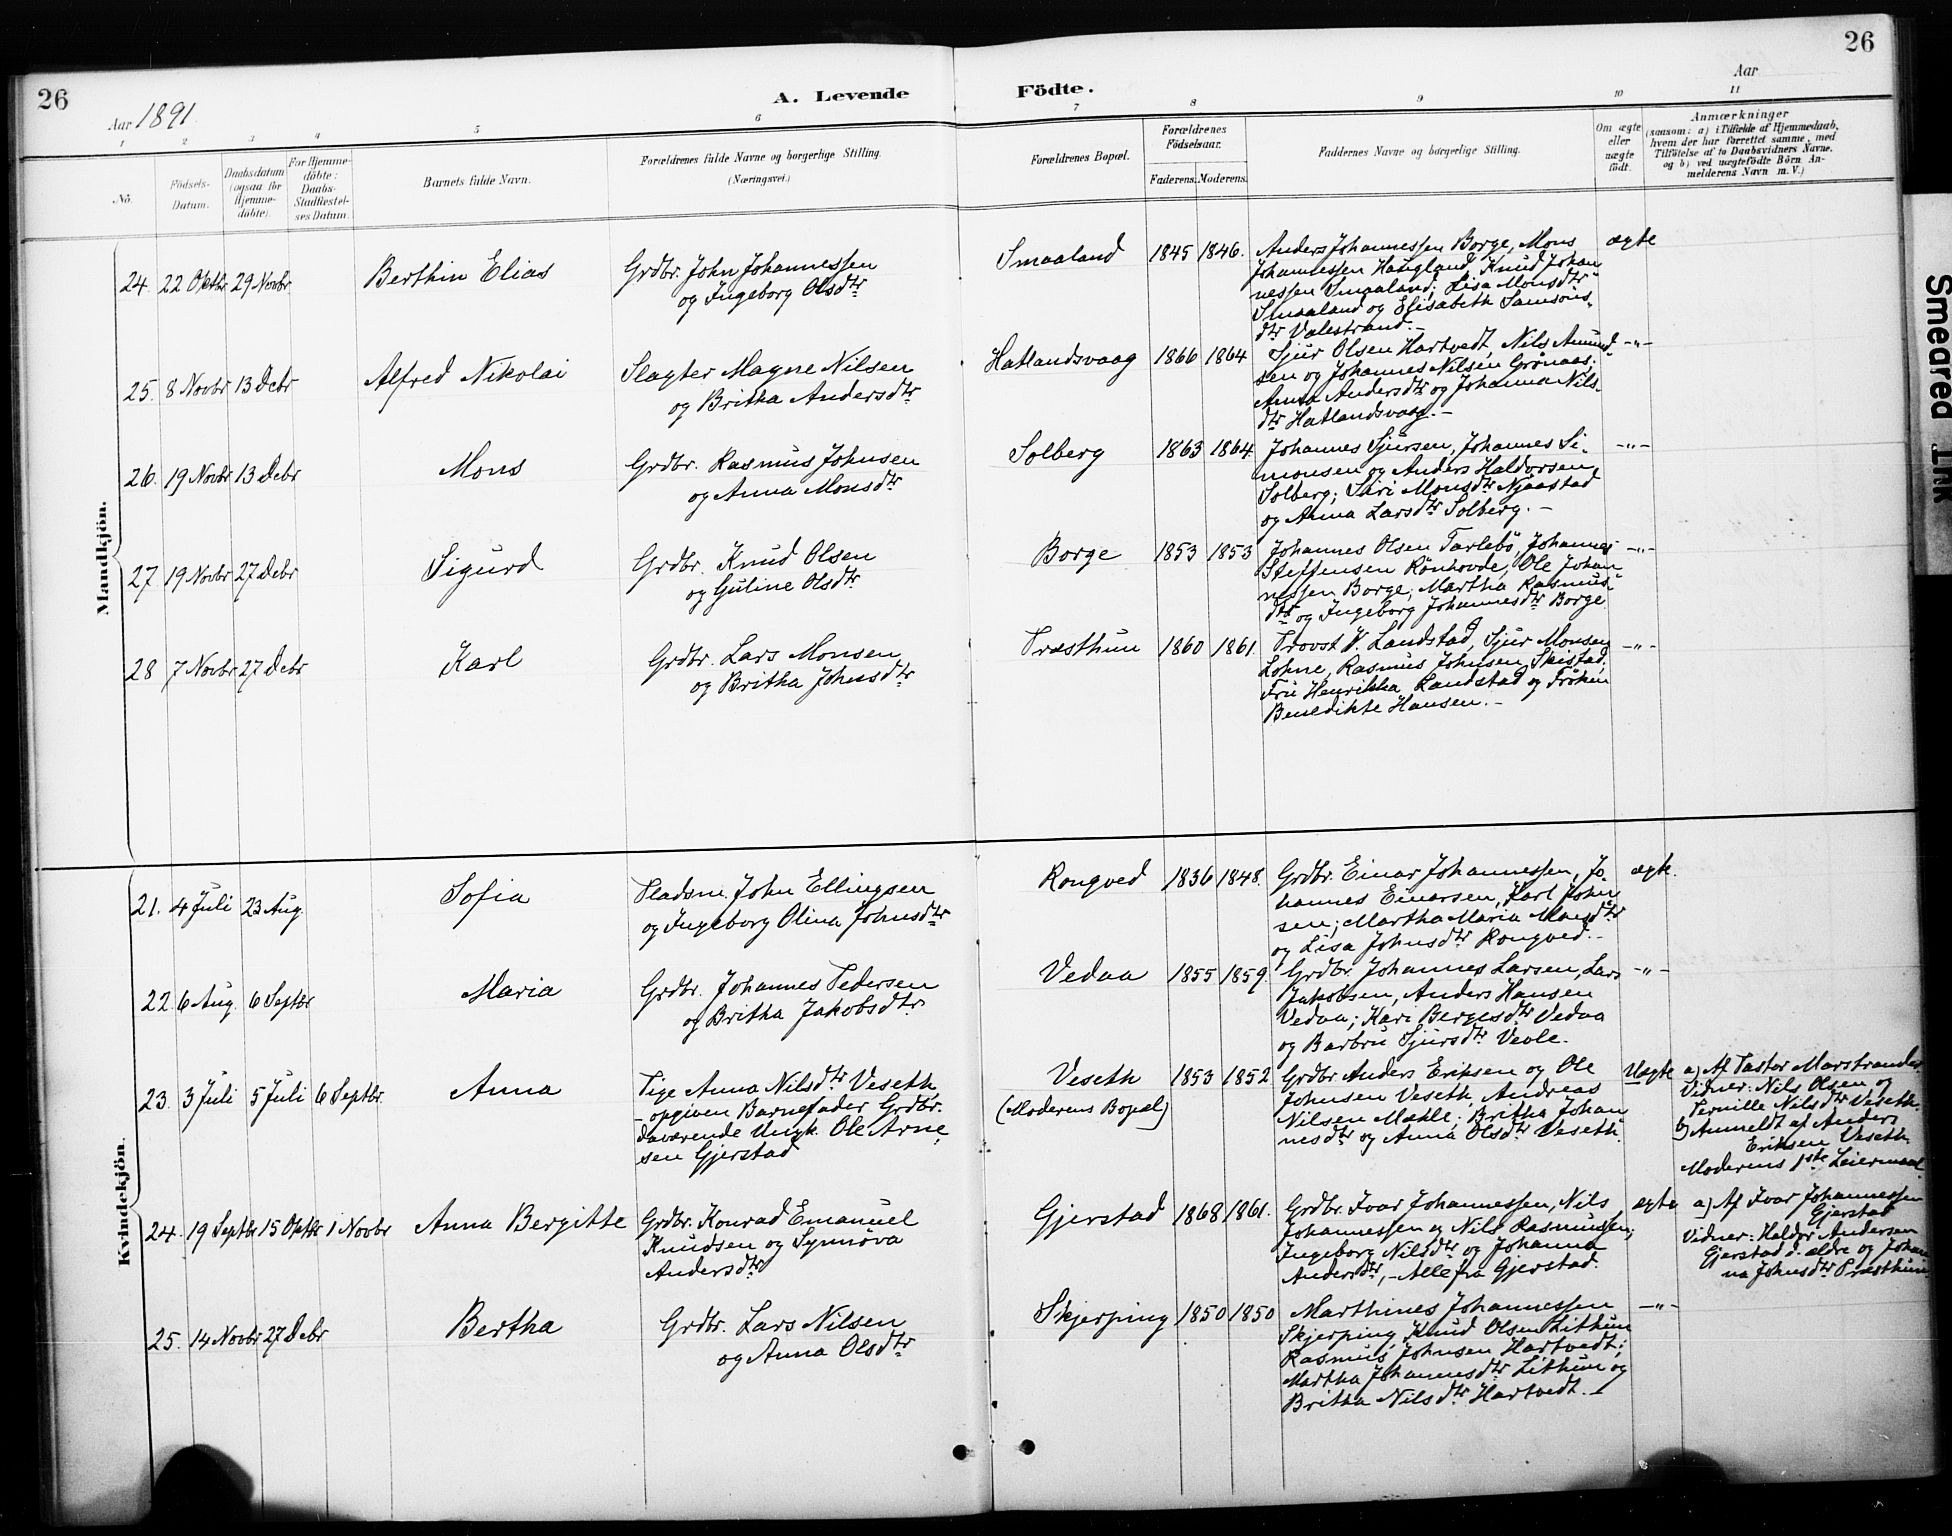 26
26
Aar 1891.
A. Levende Födte.
Aar
1 2 3 4 5 6 7 8 9 10 11
No. Födsels-Datum. Daabsdatum (ogsaa for Hjemme-döbte). For Hjemme-döbte: Daabs-Stadfæstel-ses Datum. Barnets fulde Navn. Forældrenes fulde Navne og borgerlige Stilling. (Næringsvei.) Forældrenes Bopæl. Forældrenes Födselsaar. Faderens. Moderens. Faddernes Navne og borgerlige Stilling. Om ægte eller uægte födt. Anmærkninger
(saasom: a) i Tilfælde af Hjemmedaab,
hvem der har forrettet samme, med
Tilföielse af to Daabsvidners Navne.
og b) ved uægtefödte Börn, An-
melderens Navn m. V.)
Mandkjön.
24. 22 Oktbr 29 Novbr Berthin Elias
Grdbr. John Johannessen
og Ingeborg Olsdtr
Smaaland 1845 1846.
Anders Johannessen Borge, Mons
Johannessen Haugland, Knud Johan
nessen Smaaland; Lisa Monsdtr
Smaaland og Elisabeth Samsons-
dtr Valestrand. –
ægte
25. 8 Novbr 13 Debr Alfred Nikolai
Slagter Magne Nilsen
og Britha Andersdtr
Hatlandsvaag 1866 1864
Sjur Olsen Hartvedt, Nils Amund-
sen og Johannes Nilsen Grønaas;
Anna Andersdtr og Johanna Nils-
dtr Hatlandsvaag. –
–"–
26. 19 Novbr 13 Debr Mons
Grdbr. Rasmus Johnsen
og Anna Monsdtr
Solberg 1863 1864.
Johannes Sjursen, Johannes Si-
monsen og Anders Haldorsen
Solberg; Siri Monsdtr Njaastad
og Anna Larsdtr Solberg. –
–"–
27. 19 Novbr 27 Debr Sigurd
Grdbr. Knud Olsen
og Guline Olsdtr
Borge 1853 1853
Johannes Olsen Tarlebö, Johannes
Steffensen Rönhovde, Ole Johan
nessen Borge; Martha Rasmus-
dtr og Ingeborg Johannesdtr Borge
–"–
28 7 Novbr 27 Debr Karl
Grdbr. Lars Monsen
og Britha Johnsdtr
Præsthun 1860 1861.
Provst V. Landstad, Sjur Monsen
Lohne, Rasmus Johnsen Skistad;
Fru Henrikka Landstad og Fröken
Benedikte Hansen. –
–"–
Kvindekjön.
21. 4 Juli 23 Aug. Sofia
Pladsm. John Ellingsen
og Ingeborg Olina Johnsdtr
Rongved 1836 1848.
Grdbr. Einar Johannessen, Jo-
hannes Einarsen, Karl John
sen; Martha Maria Monsdtr
og Lisa Johnsdtr Rongved. –
ægte.
22. 6 Aug. 6 Septbr Maria
Grdbr. Johannes Pedersen
og Britha Jakobsdtr
Vedaa 1855 1859.
Grdbr. Johannes Larsen, Lars
Jakobsen, Anders Hansen
Vedaa; Kari Bergesdtr Vedaa
og Barbru Sjursdtr Veole.
–"–
23. 3 Juli 5 Juli 6 Septbr. Anna
Pige Anna Nilsdtr Veseth,
– opgiven Barnefader Grdbr.
daværende Ungk. Ole Arne-
sen Gjerstad
Veseth 1853 1852
(Moderens Bopæl)
Grdbr. Anders Eriksen og Ole
Johnsen Veseth, Andreas
Nilsen Mæhle; Britha Johan
nesdtr og Anna Olsdtr Veseth.
Uægte
a) Af Pastor Marstrander
Vidner: Nils Olsen og
Pernille Nilsdtr Veseth.
b) Anmeldt af Anders
Eriksen Veseth.
Moderens 1ste Leiermaal
24. 19 Septbr 15 Oktbr 1 Novbr Anna Bergitte
Grdbr. Konrad Emanuel
Knudsen og Synnöva
Andersdtr
Gjerstad 1868 1861.
Grdbr. Ivar Johannessen, Nils
Johannessen og Nils Rasmussen;
Ingeborg Nilsdtr og Johanna
Andersdtr, – Alle fra Gjerstad.
ægte
a) Af Ivar Johannessen
Gjerstad
Vidner: Haldor Andersen
Gjerstad d. ældre og Johan
na Johnsdtr Præsthun
25. 14 Novbr 27 Debr Bertha
Grdbr. Lars Nilsen
og Anna Olsdtr
Skjerping 1850 1850
Marthines Johannessen
Skjerping, Knud Olsen Lithun
Rasmus Johnsen Hartvedt;
Martha Johannesdtr Lithun og
Britha Nilsdtr Hartvedt. –
–"–
Smeared Ink